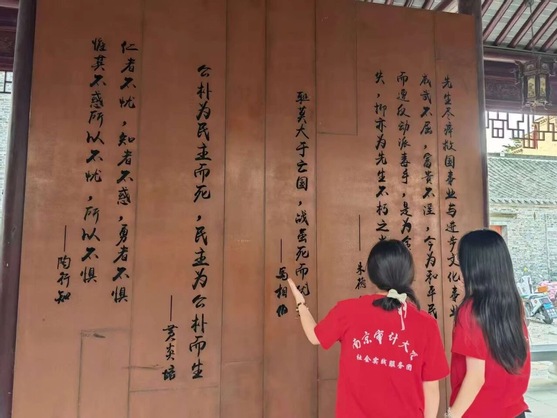 先生尽瘁救国事业与进步文化事业
威武不屈，富贵不淫，今为和平民
而遭反动派毒手，是为全
失，抑亦为先生不朽之
——朱德
耻莫大于亡国，战虽死而犹
——马相伯
公朴为民主而死，民主为公朴而生
——黄炎培
仁者不忧，知者不惑，勇者不惧
惟其不惑所以不忧，所以不惧
——陶行知
南京审计大学
社会实践服务团